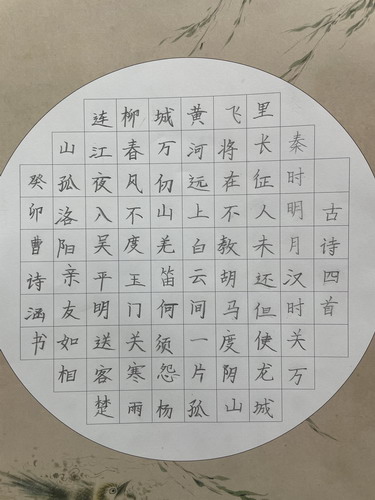 古诗四首
秦时明月汉时关万
里长征人未还但使龙城
飞将在不教胡马度阴山
黄河远上白云间一片孤
城万仞山羌笛何须怨杨
柳春风不度玉门关寒雨
连江夜入吴平明送客楚
山孤洛阳亲友如相
癸卯曹诗涵书